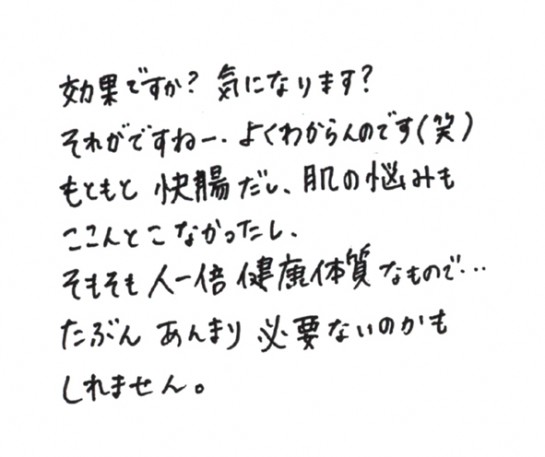 効果ですか？ 気になります？
それがですねー．よくわからんのです（笑）
もともと 快腸だし、肌の悩みも
ここんとこなかったし、
そもそも人一倍 健康体質なもので…
たぶん あんまり 必要ないのかも
しれません。